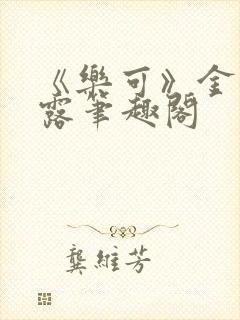 《樂可》金
露筆趣閣
龔維芳